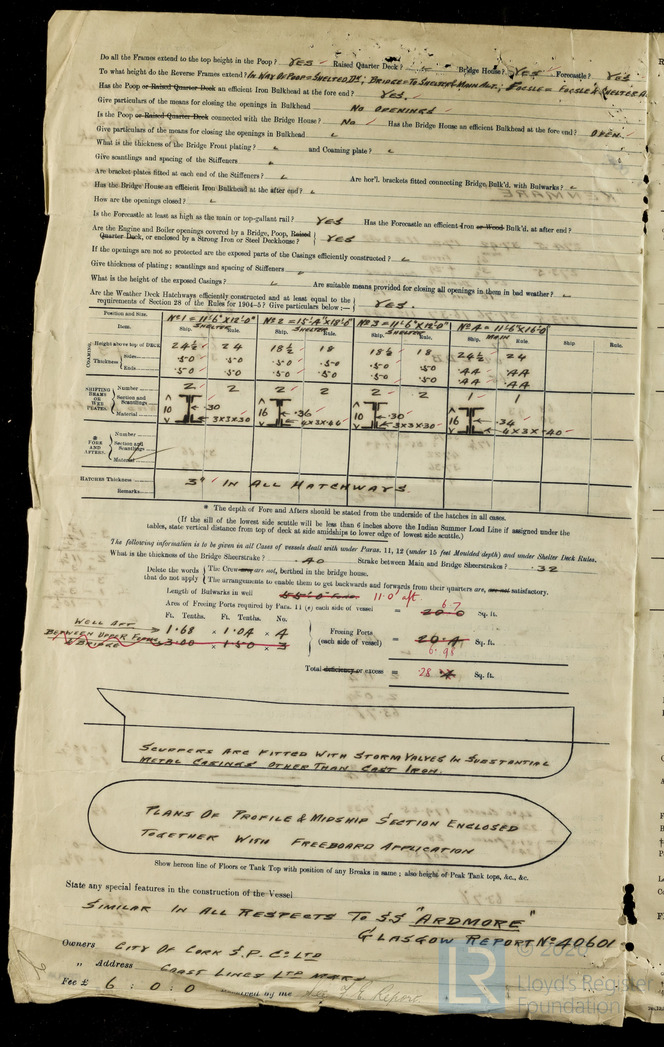 Do all the Frames extend to the top height in the Poop? YES Raised Quarter Deck? Bridge House? YES Forecastle? YES
To what height do the Reverse Frames extend? IN WAY OF POOP = SHELTER DK; BRIDGE = TO SHELTER & MAIN ALT.; FOCSLE = FOCSLE & SHELTER A.
Has the Poop or Raised Quarter Deck an efficient Iron Bulkhead at the fore end? YES.
Give particulars of the means for closing the openings in Bulkhead NO OPENINGS
Is the Poop or Raised Quarter Deck connected with the Bridge House? NO Has the Bridge House an efficient Bulkhead at the fore end? OPEN.
Give particulars of the means for closing the openings in Bulkhead
What is the thickness of the Bridge Front plating? and Coaming plate?
Give scantlings and spacing of the Stiffeners
Are bracket plates fitted at each end of the Stiffeners? Are hor'l. brackets fitted connecting Bridge Bulk'd. with Bulwarks?
Has the Bridge House an efficient Iron Bulkhead at the after end?
How are the openings closed?
Is the Forecastle at least as high as the main or top-gallant rail? YES Has the Forecastle an efficient Iron or Wood Bulk'd. at after end?
Are the Engine and Boiler openings covered by a Bridge, Poop, Raised
Quarter Deck, or enclosed by a Strong Iron or Steel Deckhouse? YES
If the openings are not so protected are the exposed parts of the Casings efficiently constructed?
Give thickness of plating; scantlings and spacing of Stiffeners
What is the height of the exposed Casings? Are suitable means provided for closing all openings in them in bad weather?
Are the Weather Deck Hatchways efficiently constructed and at least equal to the
requirements of Section 28 of the Rules for 1904-5? Give particulars below:— YES.
Position and Size. Nº1 = 11'6"X12'0" Nº2 = 15'4"X18'0" Nº3 = 11'6"X12'0" Nº4 = 11'6"X16'0"
SHELTER SHELTER SHELTER MAIN
Item. Ship. Rule. Ship. Rule. Ship. Rule. Ship. Rule. Ship. Rule.
COAMING Height above top of DECK 24½ 24 18½ 18 18½ 18 24½ 24
Thickness Sides .50 .50 .50 .50 .50 .50 .44 .44
Ends .50 .50 .50 .50 .50 .50 .44 .44
SHIFTING BEAMS OR WEB PLATES. Number 2 2 2 2 2 2 1 1
Section and Scantlings 10 .30 16 .36 10 .30 16 .34
Material 3X3X30 4X3X40 3X3X30 4X3X40
* FORE AND AFTERS. Number
Section and Scantlings
Material
HATCHES Thickness 3" IN ALL HATCHWAYS.
Remarks
* The depth of Fore and Afters should be stated from the underside of the hatches in all cases.
(If the sill of the lowest side scuttle will be less than 6 inches above the Indian Summer Load Line if assigned under the
tables, state vertical distance from top of deck at side amidships to lower edge of lowest side scuttle.)
The following information is to be given in all Cases of vessels dealt with under Paras. 11, 12 (under 15 feet Moulded depth) and under Shelter Deck Rules.
What is the thickness of the Bridge Sheerstrake? .40 Strake between Main and Bridge Sheerstrakes? .32
Delete the words that do not apply
The Crew are, are not, berthed in the bridge house.
The arrangements to enable them to get backwards and forwards from their quarters are, are not satisfactory.
Length of Bulwarks in well 11.0' aft
Area of Freeing Ports required by Para. 11 (e) each side of vessel = 20.0 6.7 Sq. ft.
Ft. Tenths. Ft. Tenths. No.
WELL AFT 1.68 × 1.04 × 4
BETWEEN UPPER FOCSLE & BRIDGE 3.00 × 1.50 × 3
Freeing Ports (each side of vessel) = 20.4 6.98 Sq. ft.
Total deficiency or excess = .28 .4 Sq. ft.
SCUPPERS ARE FITTED WITH STORM VALVES IN SUBSTANTIAL
METAL CASINGS OTHER THAN CAST IRON.
PLANS OF PROFILE & MIDSHIP SECTION ENCLOSED
TOGETHER WITH FREEBOARD APPLICATION
Show hereon line of Floors or Tank Top with position of any Breaks in same; also height of Peak Tank tops, &c., &c.
State any special features in the construction of the Vessel
SIMILAR IN ALL RESPECTS TO S.S "ARDMORE"
GLASGOW REPORT Nº 40601
Owners CITY OF CORK S.P. Cº LTD
" Address COAST LINES LTD
Fee £ 6 : 0 : 0 Received by me See F.E. Report
© 2020
LR
Lloyd's Register
Foundation